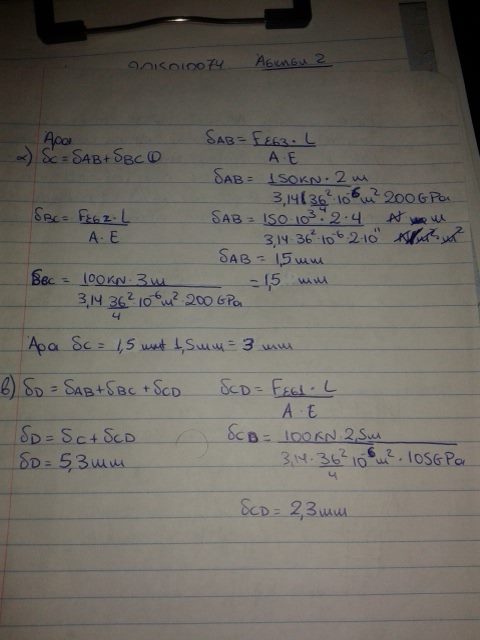 Άσκηση 2
Άρα
α) δC = δAB + δBC ①
δAB = Fεσ3 · L / A · E
δAB = 150KN · 2 m / 3,14 36²/4 · 10⁻⁶ m² 200 GPa
δBC = Fεσ2 · L / A · E
δAB = 150 · 10³ · 2 · 4 / 3,14 · 36² · 10⁻⁶ · 2 · 10¹¹
δAB = 1,5 mm
δBC = 100KN · 3m / 3,14 36²/4 10⁻⁶ m² · 200 GPa = 1,5 mm
Άρα δC = 1,5 mm + 1,5 mm = 3 mm
β) δD = δAB + δBC + δCD
δCD = Fεσ1 · L / A · E
δD = δC + δCD
δCD = 100KN · 2,5m / 3,14 · 36²/4 10⁻⁶ m² · 105 GPa
δD = 5,3 mm
δCD = 2,3 mm